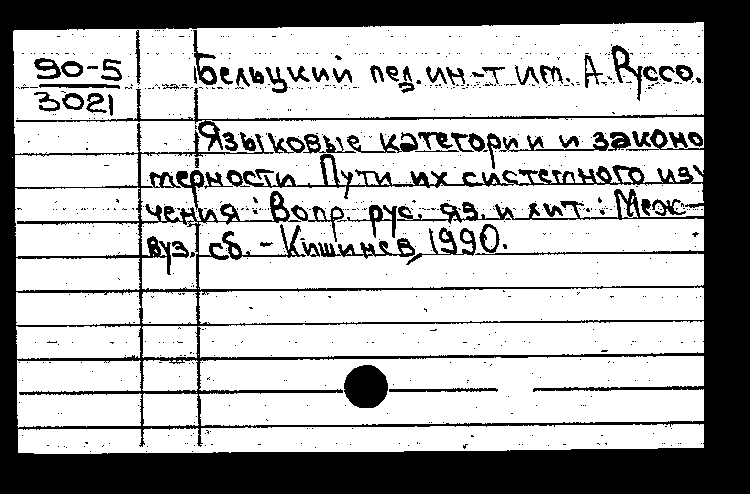 90-5
3021
Бельцкий пед. ин-т им. А. Руссо.
Языковые категории и законо
мерности. Пути их системного изу
чения: Вопр. рус. яз. и лит.: Меж-
вуз. сб. - Кишинев, 1990.